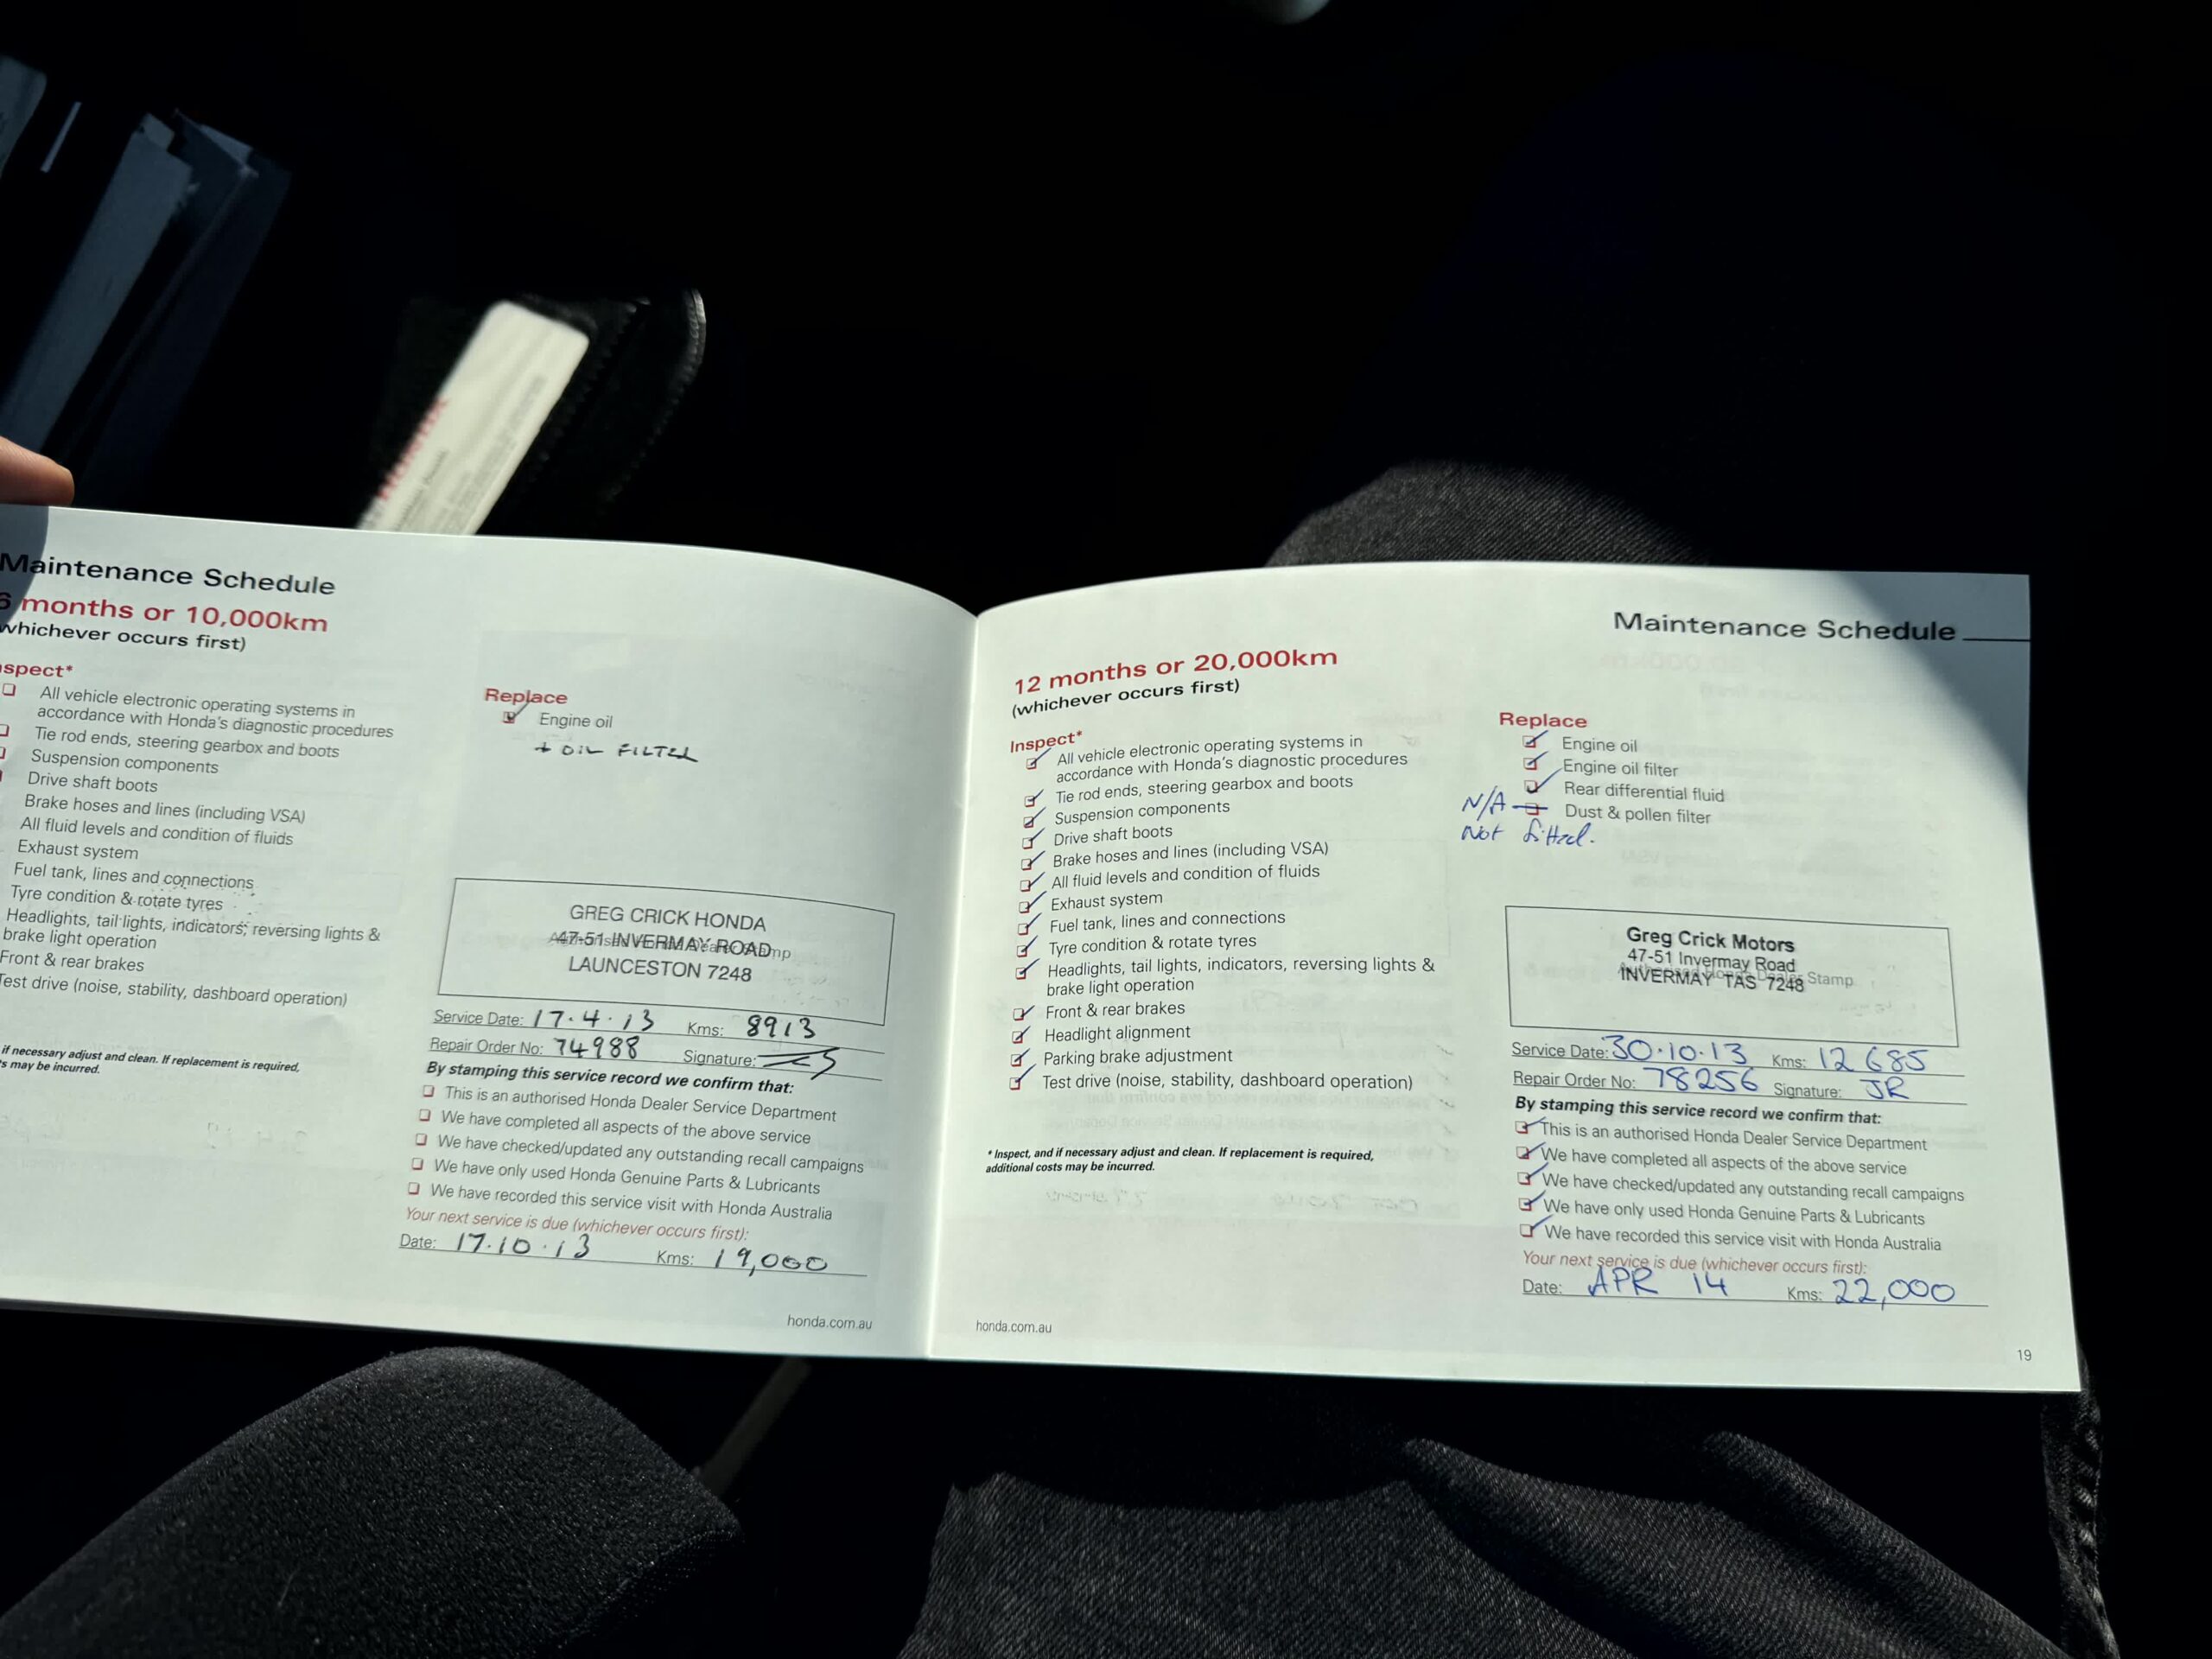 Maintenance Schedule
6 months or 10,000km
(whichever occurs first)
Inspect*
All vehicle electronic operating systems in
accordance with Honda's diagnostic procedures
Tie rod ends, steering gearbox and boots
Suspension components
Drive shaft boots
Brake hoses and lines (including VSA)
All fluid levels and condition of fluids
Exhaust system
Fuel tank, lines and connections
Tyre condition & rotate tyres
Headlights, tail lights, indicators, reversing lights &
brake light operation
Front & rear brakes
Test drive (noise, stability, dashboard operation)
if necessary adjust and clean. If replacement is required,
may be incurred.
Replace
Engine oil
+ OIL FILTER
GREG CRICK HONDA
47-51 INVERMAY ROAD
LAUNCESTON 7248
Authorised Honda Dealer Stamp
Service Date: 17.4.13 Kms: 8913
Repair Order No: 74988 Signature:
By stamping this service record we confirm that:
This is an authorised Honda Dealer Service Department
We have completed all aspects of the above service
We have checked/updated any outstanding recall campaigns
We have only used Honda Genuine Parts & Lubricants
We have recorded this service visit with Honda Australia
Your next service is due (whichever occurs first):
Date: 17.10.13 Kms: 19,000
honda.com.au
Maintenance Schedule
12 months or 20,000km
(whichever occurs first)
Inspect*
All vehicle electronic operating systems in
accordance with Honda's diagnostic procedures
Tie rod ends, steering gearbox and boots
Suspension components
Drive shaft boots
Brake hoses and lines (including VSA)
All fluid levels and condition of fluids
Exhaust system
Fuel tank, lines and connections
Tyre condition & rotate tyres
Headlights, tail lights, indicators, reversing lights &
brake light operation
Front & rear brakes
Headlight alignment
Parking brake adjustment
Test drive (noise, stability, dashboard operation)
* Inspect, and if necessary adjust and clean. If replacement is required,
additional costs may be incurred.
honda.com.au
Replace
Engine oil
Engine oil filter
Rear differential fluid
N/A Dust & pollen filter
Not fitted.
Greg Crick Motors
47-51 Invermay Road
INVERMAY TAS 7248
Authorised Honda Dealer Stamp
Service Date: 30.10.13 Kms: 12685
Repair Order No: 78256 Signature: JR
By stamping this service record we confirm that:
This is an authorised Honda Dealer Service Department
We have completed all aspects of the above service
We have checked/updated any outstanding recall campaigns
We have only used Honda Genuine Parts & Lubricants
We have recorded this service visit with Honda Australia
Your next service is due (whichever occurs first):
Date: APR 14 Kms: 22,000
19